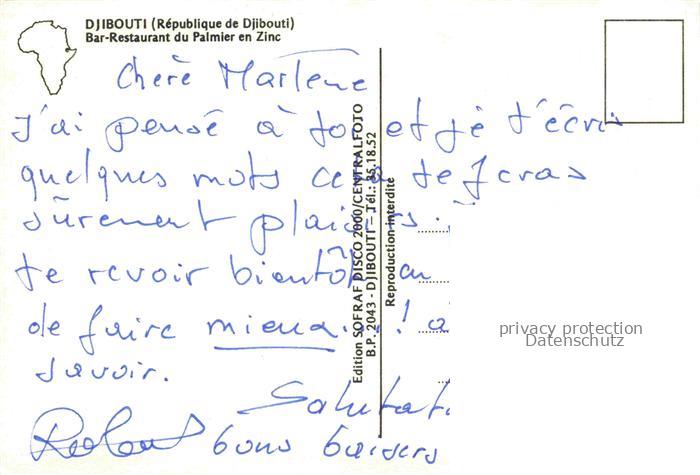 DJIBOUTI (République de Djibouti)
Bar-Restaurant du Palmier en Zinc
Chère Marlène
J'ai pensé à toi et je t'écris
quelques mots cela te feras
sûrement plaisirs.
te revoir bientôt en
de faire mieux...! à
savoir.
Salutat
bons baisers
Edition SOFRAF DISCO 2000/CENTRALFOTO
B.P. 2043 - DJIBOUTI - Tél.: 35.18.52
Reproduction interdite
privacy protection
Datenschutz